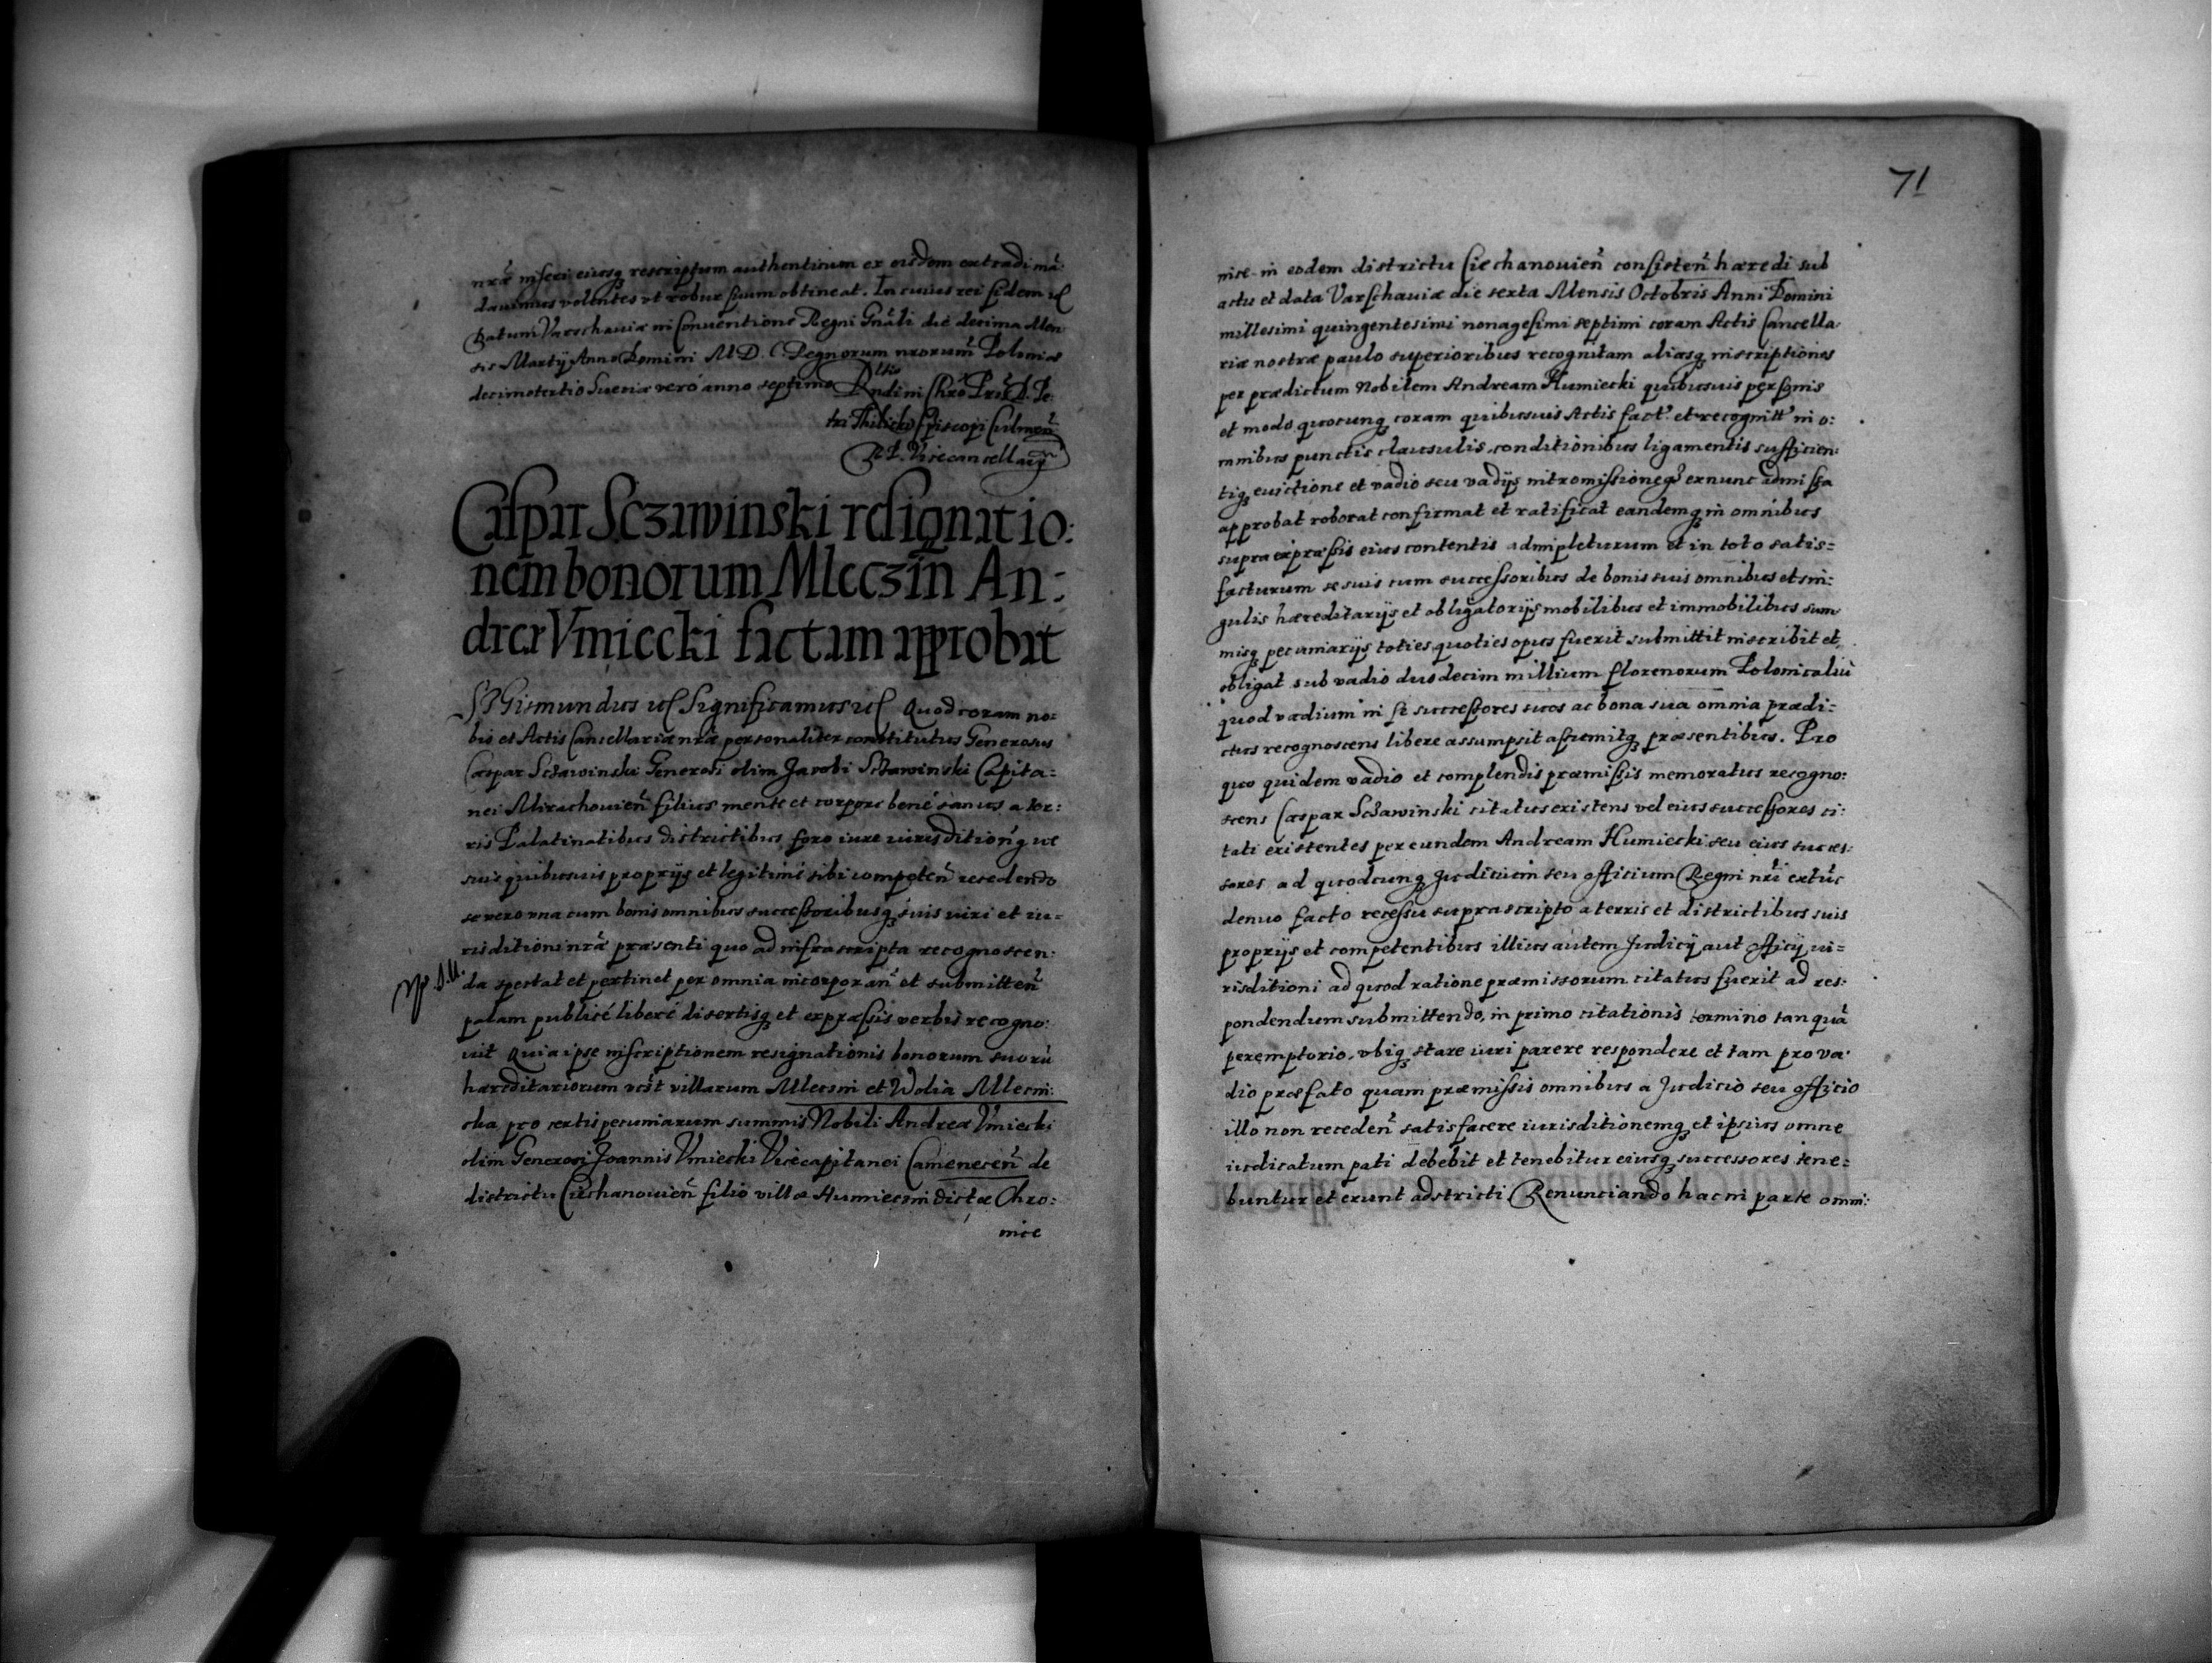 nrae inseri eiusq rescriptum authenticum ex eisdem extradi mã:
davimus volentes ut robur suum obtineat. In cuius rei fidem etc
Datum Varschaviæ in Conventione Regni Gnãli die decima Men
sis Martij Anno Domini M.D.C. Regnorum nrorum Poloniæ
decimotertio Sueciæ vero anno septimo Rndi in Chrõ Pris D. Pe:
tri Thilicki Episcopi Culmeñ
R.P. Vicecancellarij
Caspar Sczawinski resignatio:
nem bonorum Mleczin An:
dreæ Vmiecki factam approbat
SIGismundus etc Significamus etc Quod coram no:
bis et Actis Cancellariæ nræ personaliter constitutus Generosus
Caspar Sczawinski Generosi olim Jacobi Sczawinski Capita=
nei Mirachovieñ filius mente et corpore bené sanus a ter:
ris Palatinatibus districtibus foro iure iurisditionq ue
suis quibusuis proprijs et legitimé sibi competeñ recedendo
se vero una cum bonis omnibus successoribusq suis iuri et iu=
risditioni nræ præsenti quo ad infrascripta recognoscen:
da spectat et pertinet per omnia incorporañ et submitteñ
palam publicé liberé disertisq et expræssis verbis recogno:
uit Quia ipse inscriptionem resignationis bonorum suorũ
hæreditariorum ucst villarum Mleczin et Wolia Mleczin:
ska pro certis pecuniarum summis Nobili Andreæ Vmiecki
olim Generosi Joannis Vmiecki Vicecapitanei Cameneceñ de
districtu Ciechanovieñ filio villæ Humieczin dictæ Chro:
nice
71
nice in eodem districtu Ciechanovieñ consisteñ hæredi sub
actu et data Varschaviæ die sexta Mensis Octobris Anni Domini
millesimi quingentesimi nonagesimi septimi coram Actis Cancella
riæ nostræ paulo superioribus recognitam aliasq inscriptiones
per prædictum Nobilem Andream Humiecki quibusuis personis
et modo quocunq coram quibusuis Actis fact. et recognitt in o:
mnibus punctis clausulis conditionibus ligamentis sufficien:
tiq euictione et vadio seu vadijs intromissioneq exnunc admissa
approbat roborat confirmat et ratificat eandemq in omnibus
supra expræssis eius contentis adimpleturum et in toto satis=
facturum se suis cum successoribus de bonis suis omnibus et sin:
gulis hæreditarijs et obligatorijs mobilibus et immobilibus sum
misq pecuniarijs toties quoties opus fuerit submittit inscribit et
obligat sub vadio duodecim millium florenorum Polonicaliũ
quod vadium in se successores suos ac bona sua omnia prædi=
ctus recognoscens libere assumpsit assumitq præsentibus. Pro
quo quidem vadio et complendis præmissis memoratus recogno:
scens Caspar Sczawinski citatus existens vel eius successores ci:
tati existentes per eundem Andream Humiecki seu eius succes:
sores ad quodcunq Judicium seu officium Regni nri extũc
denuo facto recessu suprascripto a terris et districtibus suis
proprijs et competentibus illius autem Judicij aut officij iu=
risditioni ad quod ratione præmissorum citatus fuerit ad res:
pondendum submittendo, in primo citationis termino tanquã
peremptorio, ubiq stare iuri parere respondere et tam pro va
dio præfato quam præmissis omnibus a Judicio seu officio
illo non recedeñ satisfacere iurisditionemq et ipsius omne
iudicatum pati debebit et tenebitur eiusq successores tene=
buntur et erunt adstricti Renunciando hac in parte omni: